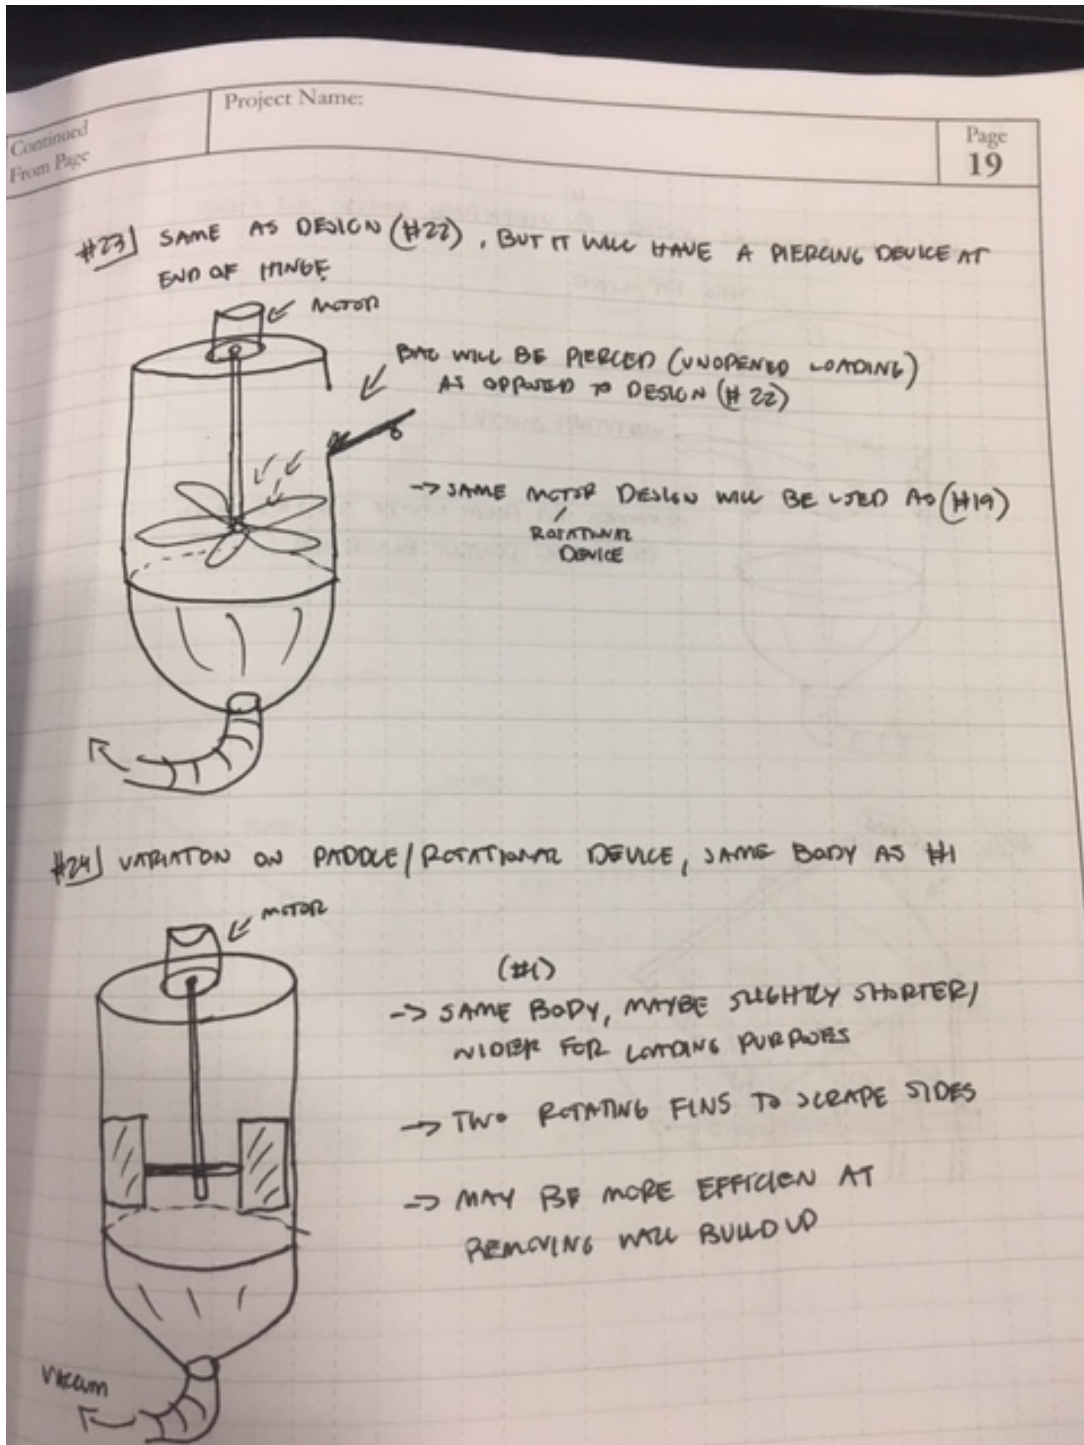 Continued
From Page
Project Name:
Page
19
#23] SAME AS DESIGN (#22), BUT IT WILL HAVE A PIERCING DEVICE AT
END OF HINGE
MOTOR
BAG WILL BE PIERCED (UNOPENED LOADING)
AS OPPOSED TO DESIGN (# 22)
-> SAME MOTOR DESIGN WILL BE USED AS (#19)
/
ROTATIONAL
DEVICE
#24] VARIATON ON PADDLE/ROTATIONAL DEVICE, SAME BODY AS #1
MOTOR
(#1)
-> SAME BODY, MAYBE SLIGHTLY SHORTER/
WIDER FOR LOADING PURPOSES
-> TWO ROTATING FINS TO SCRAPE SIDES
-> MAY BE MORE EFFICIEN AT
REMOVING WALL BUILD UP
VACCUM